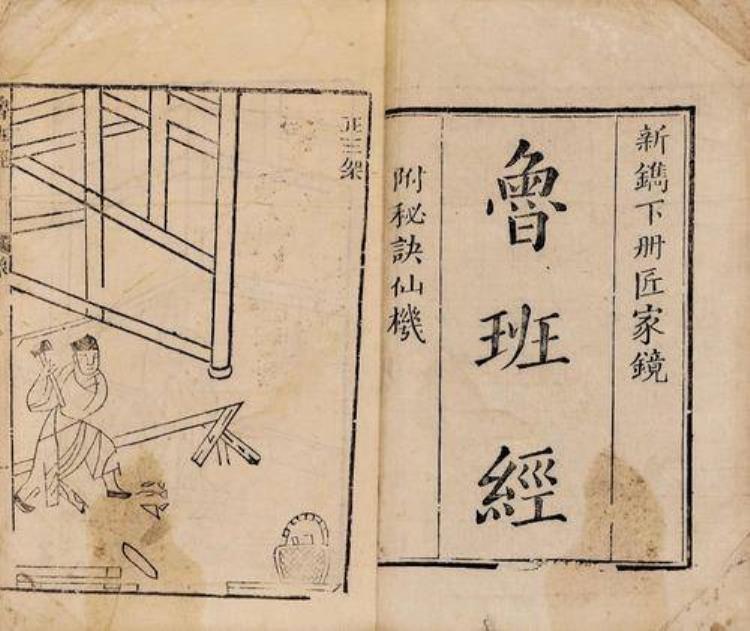 新鐫下冊匠家鏡
魯班經
附秘訣仙機
正三架